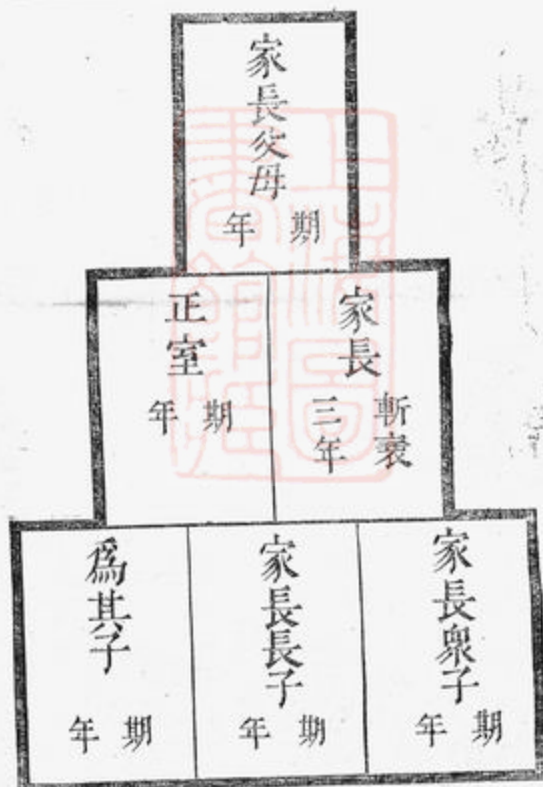 家長父母
期年
家長
斬衰三年
正室
期年
家長衆子
期年
家長長子
期年
為其子
期年
上海圖書館藏